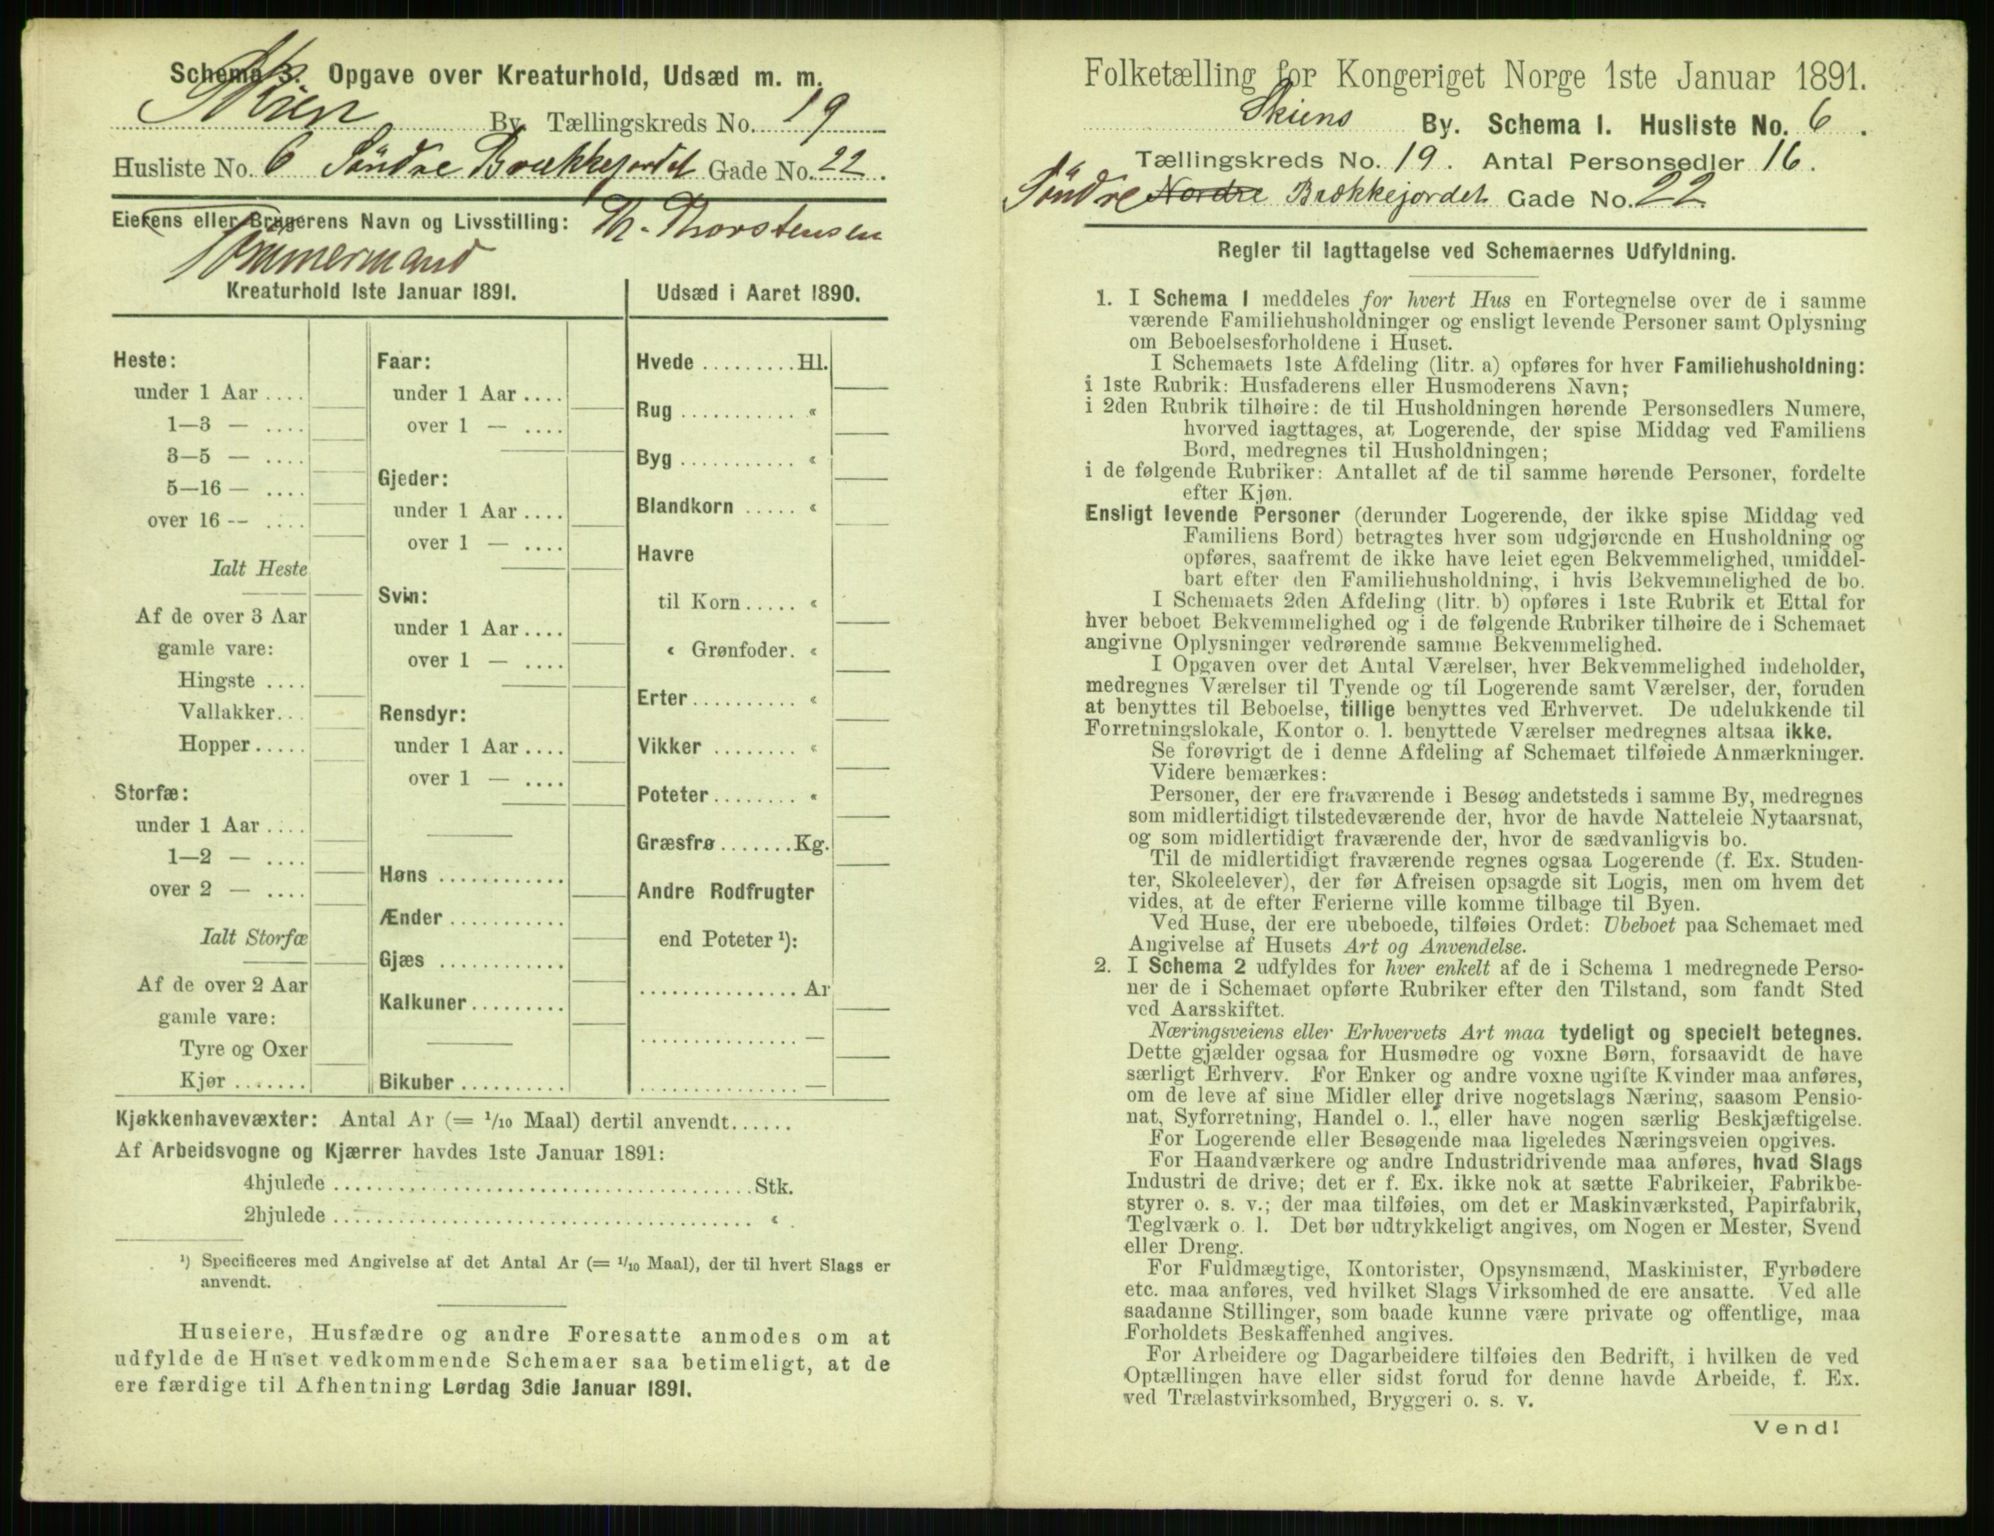 Schema 3. Opgave over Kreaturhold, Udsæd m. m.
Skien By Tællingskreds No. 19
Husliste No. 6 Söndre Brækkejordet Gade No. 22.
Eierens eller Brugerens Navn og Livsstilling: Th. Thorstensen
Tømmermand
Kreaturhold 1ste Januar 1891.
Heste:
under 1 Aar ....
1—3 — ....
3—5 — ....
5—16 — ....
over 16 — ....
Ialt Heste
Af de over 3 Aar
gamle vare:
Hingste ....
Vallakker...
Hopper.....
Storfæ:
under 1 Aar ....
1—2 — ....
over 2 — ....
Ialt Storfæ
Af de over 2 Aar
gamle vare:
Tyre og Oxer
Kjør .......
Faar:
under 1 Aar ....
over 1 — ....
Gjeder:
under 1 Aar ....
over 1 — ....
Svin:
under 1 Aar ....
over 1 — ....
Rensdyr:
under 1 Aar ....
over 1 — ....
Høns ............
Ænder ...........
Gjæs ............
Kalkuner.........
Bikuber ..........
Udsæd i Aaret 1890.
Hvede .........Hl.
Rug ........... «
Byg ........... «
Blandkorn ..... «
Havre
til Korn..... «
« Grønfoder. «
Erter.......... «
Vikker ........ «
Poteter........ «
Græsfrø.......Kg.
Andre Rodfrugter
end Poteter ¹):
............... Ar
............... —
............... —
Kjøkkenhavevæxter: Antal Ar (= 1/10 Maal) dertil anvendt......
Af Arbeidsvogne og Kjærrer havdes 1ste Januar 1891:
4hjulede ........................................Stk.
2hjulede ........................................ «
¹) Specificeres med Angivelse af det Antal Ar (= 1/10 Maal), der til hvert Slags er
anvendt.
Huseiere, Husfædre og andre Foresatte anmodes om at
udfylde de Huset vedkommende Schemaer saa betimeligt, at de
ere færdige til Afhentning Lørdag 3die Januar 1891.
Folketælling for Kongeriget Norge 1ste Januar 1891.
Skiens By. Schema I. Husliste No. 6.
Tællingskreds No. 19. Antal Personsedler 16.
Söndre Nordre Brækkejordet Gade No. 22
Regler til Iagttagelse ved Schemaernes Udfyldning.
1. I Schema 1 meddeles for hvert Hus en Fortegnelse over de i samme
værende Familiehusholdninger og ensligt levende Personer samt Oplysning
om Beboelsesforholdene i Huset.
I Schemaets 1ste Afdeling (litr. a) opføres for hver Familiehusholdning:
i 1ste Rubrik: Husfaderens eller Husmoderens Navn;
i 2den Rubrik tilhøire: de til Husholdningen hørende Personsedlers Numere,
hvorved iagttages, at Logerende, der spise Middag ved Familiens
Bord, medregnes til Husholdningen;
i de følgende Rubriker: Antallet af de til samme hørende Personer, fordelte
efter Kjøn.
Ensligt levende Personer (derunder Logerende, der ikke spise Middag ved
Familiens Bord) betragtes hver som udgjørende en Husholdning og
opføres, saafremt de ikke have leiet egen Bekvemmelighed, umiddel-
bart efter den Familiehusholdning, i hvis Bekvemmelighed de bo.
I Schemaets 2den Afdeling (litr. b) opføres i 1ste Rubrik et Ettal for
hver beboet Bekvemmelighed og i de følgende Rubriker tilhøire de i Schemaet
angivne Oplysninger vedrørende samme Bekvemmelighed.
I Opgaven over det Antal Værelser, hver Bekvemmelighed indeholder,
medregnes Værelser til Tyende og til Logerende samt Værelser, der, foruden
at benyttes til Beboelse, tillige benyttes ved Erhvervet. De udelukkende til
Forretningslokale, Kontor o. l. benyttede Værelser medregnes altsaa ikke.
Se forøvrigt de i denne Afdeling af Schemaet tilføiede Anmærkninger.
Videre bemærkes:
Personer, der ere fraværende i Besøg andetsteds i samme By, medregnes
som midlertidigt tilstedeværende der, hvor de havde Natteleie Nytaarsnat,
og som midlertidigt fraværende der, hvor de sædvanligvis bo.
Til de midlertidigt fraværende regnes ogsaa Logerende (f. Ex. Studen-
ter, Skoleelever), der før Afreisen opsagde sit Logis, men om hvem det
vides, at de efter Ferierne ville komme tilbage til Byen.
Ved Huse, der ere ubeboede, tilføies Ordet: Ubeboet paa Schemaet med
Angivelse af Husets Art og Anvendelse.
2. I Schema 2 udfyldes for hver enkelt af de i Schema 1 medregnede Perso-
ner de i Schemaet opførte Rubriker efter den Tilstand, som fandt Sted
ved Aarsskiftet.
Næringsveiens eller Erhvervets Art maa tydeligt og specielt betegnes.
Dette gjælder ogsaa for Husmødre og voxne Børn, forsaavidt de have
særligt Erhverv. For Enker og andre voxne ugifte Kvinder maa anføres,
om de leve af sine Midler eller drive nogetslags Næring, saasom Pensio-
nat, Syforretning, Handel o. l., eller have nogen særlig Beskjæftigelse.
For Logerende eller Besøgende maa ligeledes Næringsveien opgives.
For Haandværkere og andre Industridrivende maa anføres, hvad Slags
Industri de drive; det er f. Ex. ikke nok at sætte Fabrikeier, Fabrikbe-
styrer o. s. v.; der maa tilføies, om det er Maskinværksted, Papirfabrik,
Teglværk o. l. Det bør udtrykkeligt angives, om Nogen er Mester, Svend
eller Dreng.
For Fuldmægtige, Kontorister, Opsynsmænd, Maskinister, Fyrbødere
etc. maa anføres, ved hvilket Slags Virksomhed de ere ansatte. Ved alle
saadanne Stillinger, som baade kunne være private og offentlige, maa
Forholdets Beskaffenhed angives.
For Arbeidere og Dagarbeidere tilføies den Bedrift, i hvilken de ved
Optællingen have eller sidst forud for denne havde Arbeide, f. Ex.
ved Trælastvirksomhed, Bryggeri o. s. v.
Vend!